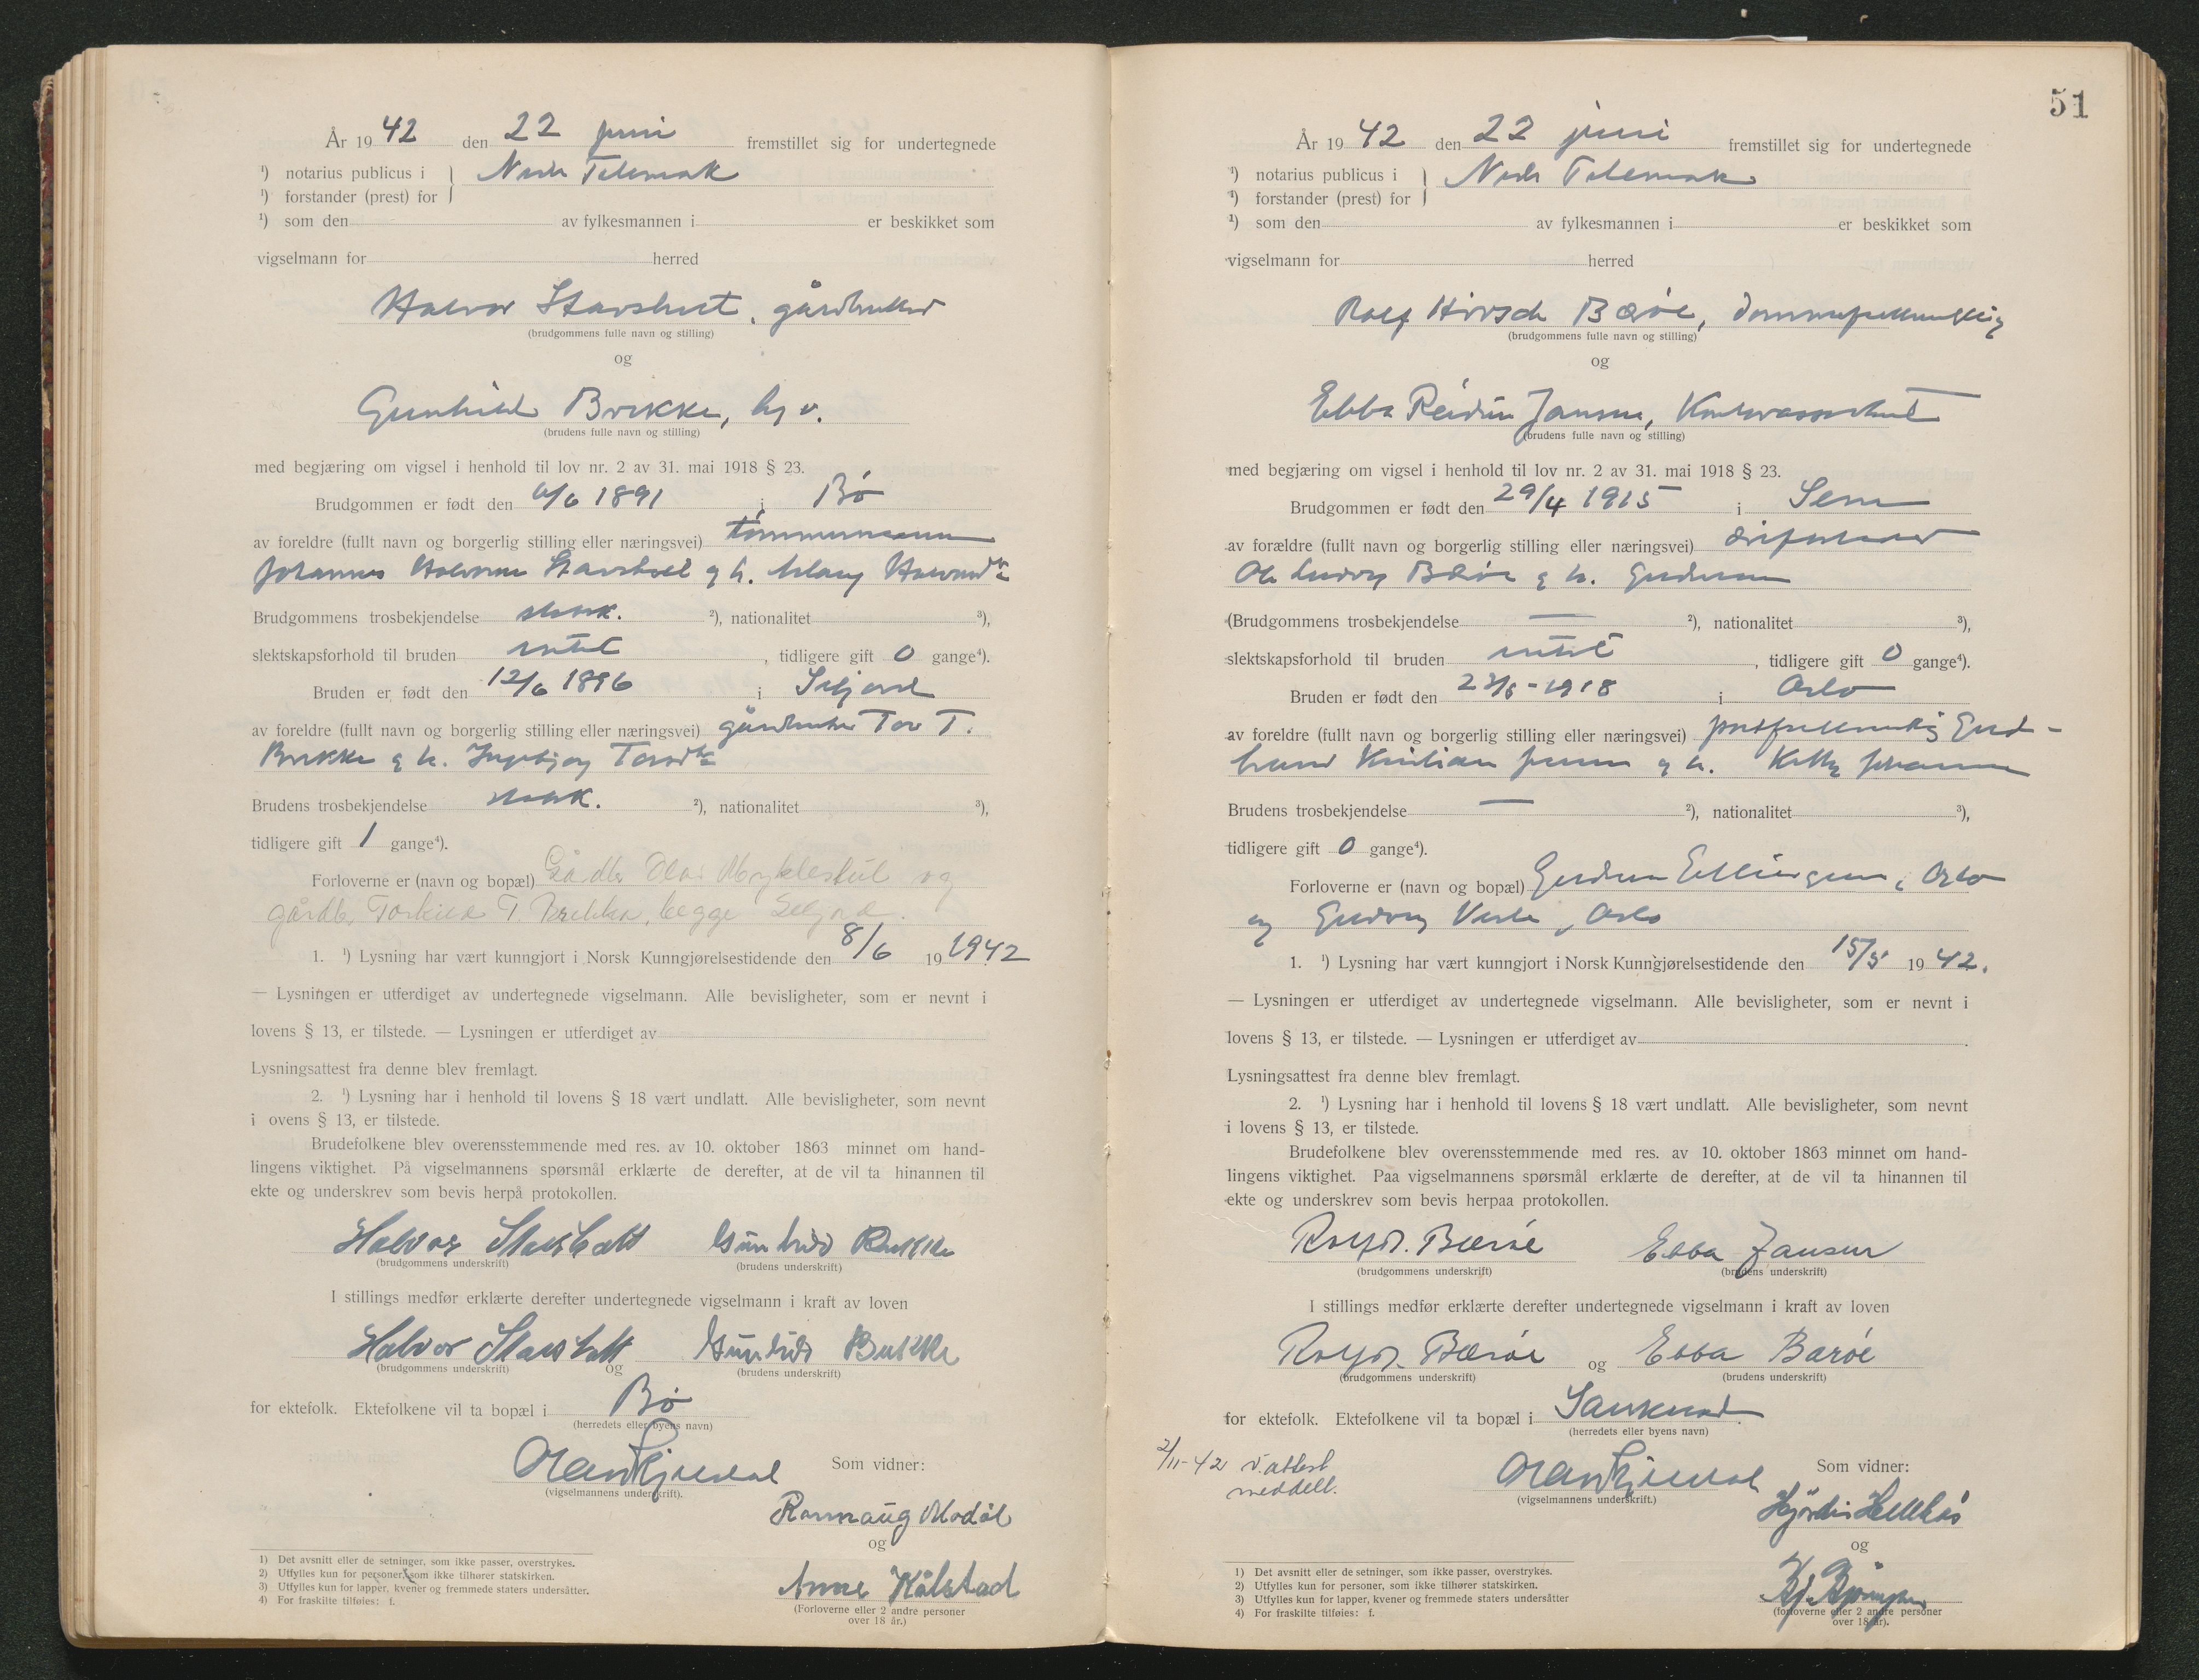 År 1942 den 22 juni fremstillet sig for undertegnede
¹) notarius publicus i
¹) forstander (prest) for
Nedr Telemark
¹) som den av fylkesmannen i er beskikket som
vigselmann for herred
Halvor Stavsholt, gårdbruker
(brudgommens fulle navn og stilling)
og
Gunhild Brekke, hv.
(brudens fulle navn og stilling)
med begjæring om vigsel i henhold til lov nr. 2 av 31. mai 1918 § 23.
Brudgommen er født den /6 1891 i Bø
av foreldre (fullt navn og borgerlig stilling eller næringsvei) tømmermann
Johannes Halvorsen h.
Brudgommens trosbekjendelse statsk. ²), nationalitet ³),
slektskapsforhold til bruden intet, tidligere gift 0 gange⁴).
Bruden er født den 12/6 1896 i Seljord
av foreldre (fullt navn og borgerlig stilling eller næringsvei) gårdbruker Tor T.
Brekke og h. Ingebjørg
Brudens trosbekjendelse statsk. ²), nationalitet ³),
tidligere gift 1 gange⁴).
Forloverne er (navn og bopæl) Gårdbr. Olav Myklestul og
gårdb. Torkild T. Brekke, begge Seljord.
1. ¹) Lysning har vært kunngjort i Norsk Kunngjørelsestidende den 8/6 19 1942
— Lysningen er utferdiget av undertegnede vigselmann. Alle bevisligheter, som er nevnt i
lovens § 13, er tilstede. — Lysningen er utferdiget av
Lysningsattest fra denne blev fremlagt.
2. ¹) Lysning har i henhold til lovens § 18 vært undlatt. Alle bevisligheter, som nevnt
i ovens § 13, er tilstede.
Brudefolkene blev overensstemmende med res. av 10. oktober 1863 minnet om hand-
lingens viktighet. På vigselmannens spørsmål erklærte de derefter, at de vil ta hinannen til
ekte og underskrev som bevis herpå protokollen.
Halvor Stavsholt Gunhild Brekke
(brudgommens underskrift) (brudens underskrift)
I stillings medfør erklærte derefter undertegnede vigselmann i kraft av loven
Halvor Stavsholt og Gunhild Brekke
(brudgommens underskrift) (brudens underskrift)
for ektefolk. Ektefolkene vil ta bopæl i Bø
(herredets eller byens navn)
Som vidner:
(vigselmannens underskrift).
Rannaug Modål
og
Anne Kålstad
(Forloverne eller 2 andre personer
over 18 år.)
1) Det avsnitt eller de setninger, som ikke passer, overstrykes.
2) Utfylles kun for personer, som ikke tilhører statskirken.
3) Utfylles kun for lapper, kvener og fremmede staters undersåtter.
4) For fraskilte tilføies: f.
51
År 1942 den 22 juni fremstillet sig for undertegnede
¹) notarius publicus i
¹) forstander (prest) for
Nedr Telemark
¹) som den av fylkesmannen i er beskikket som
vigselmann for herred
Rolf Hirsch Bærøe, dommerfullmektig
(brudgommens fulle navn og stilling)
og
Ebba Reidun Jansen, Kontorassistent
(brudens fulle navn og stilling)
med begjæring om vigsel i henhold til lov nr. 2 av 31. mai 1918 § 23.
Brudgommen er født den 29/4 1915 i Sem
av forældre (fullt navn og borgerlig stilling eller næringsvei)
Ole Ludvig Bærøe og h. Gudrun
(Brudgommens trosbekjendelse — ²), nationalitet ³),
slektskapsforhold til bruden intet, tidligere gift 0 gange⁴).
Bruden er født den - 1918 i Oslo
av foreldre (fullt navn og borgerlig stilling eller næringsvei) postfullmektig Gud-
brand Kristian Jansen og h. Kitty Johanne
Brudens trosbekjendelse — ²), nationalitet ³),
tidligere gift 0 gange⁴).
Forloverne er (navn og bopæl) Gudrun Ellingsen, Oslo
og Gudrun Oslo
1. ¹) Lysning har vært kunngjort i Norsk Kunngjørelsestidende den 15/5 1942.
— Lysningen er utferdiget av undertegnede vigselmann. Alle bevisligheter, som er nevnt i
lovens § 13, er tilstede. — Lysningen er utferdiget av
Lysningsattest fra denne blev fremlagt.
2. ¹) Lysning har i henhold til lovens § 18 vært undlatt. Alle bevisligheter, som nevnt
i lovens § 13, er tilstede.
Brudefolkene blev overensstemmende med res. av 10. oktober 1863 minnet om hand-
lingens viktighet. Paa vigselmannens spørsmål erklærte de derefter, at de vil ta hinannen til
ekte og underskrev som bevis herpaa protokollen.
Rolf H. Bærøe Ebba Jansen
(brudgommens underskrift) (brudens underskrift)
I stillings medfør erklærte derefter undertegnede vigselmann i kraft av loven
Rolf H. Bærøe og Ebba Bærøe
(brudgommens underskrift) (brudens underskrift)
for ektefolk. Ektefolkene vil ta bopæl i Sauherad
(herredets eller byens navn)
2/11-42 v.attest
meddelt.
Som vidner:
(vigselmannens underskrift.)
Hjørdis
og
(forloverne eller 2 andre personer
over 18 år).
1) Det avsnitt eller de setninger, som ikke passer, overstrykes.
2) Utfylles kun for personer, som ikke tilhører statskirken.
3) Utfylles kun for lapper, kvener og fremmede staters undersåtter
4) For fraskilte tilføies: f.